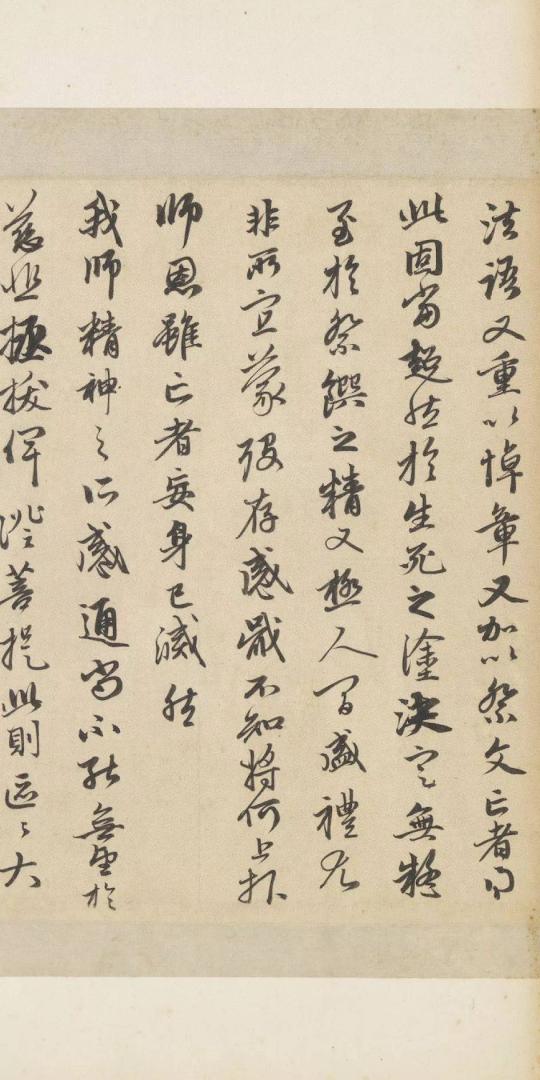 法語又重以悼章又加以祭文亡者聞
此固當超然於生死之塗決定無疑
至於祭饌之精又極人間盛禮尤
非所宜蒙歿存感戴不知將何上報
師恩雖亡者妄身已滅然
我師精神之所感通尚不能無望於
慈悲拯拔俾證菩提此則區區大